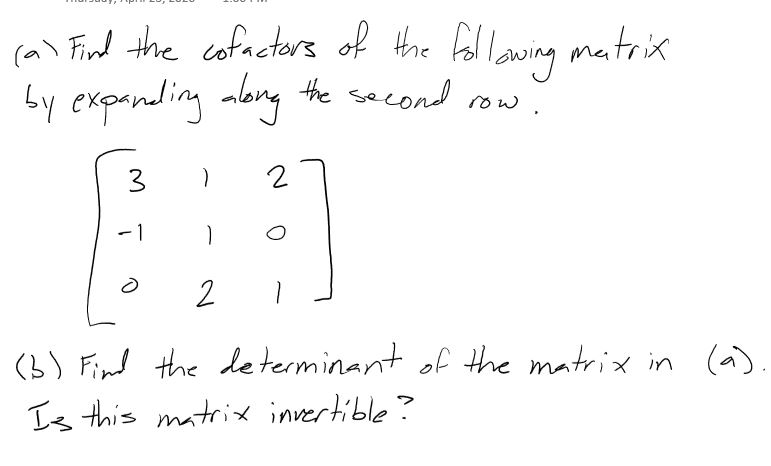 (a) Find the cofactors of the following matrix
by expanding along the second row.
3 1 2
-1 1 0
0 2 1
(b) Find the determinant of the matrix in (a).
Is this matrix invertible?